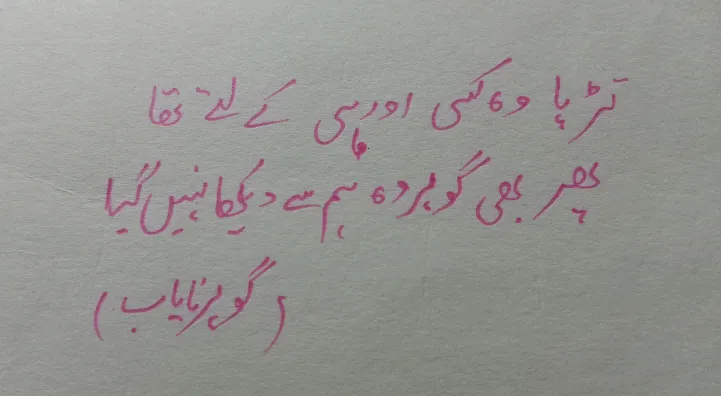 تڑپا وہ کسی اور ہی کے لئے تھا
پھر بھی گوہر وہ ہم سے دیکھا نہیں گیا
(گوہر نایاب)